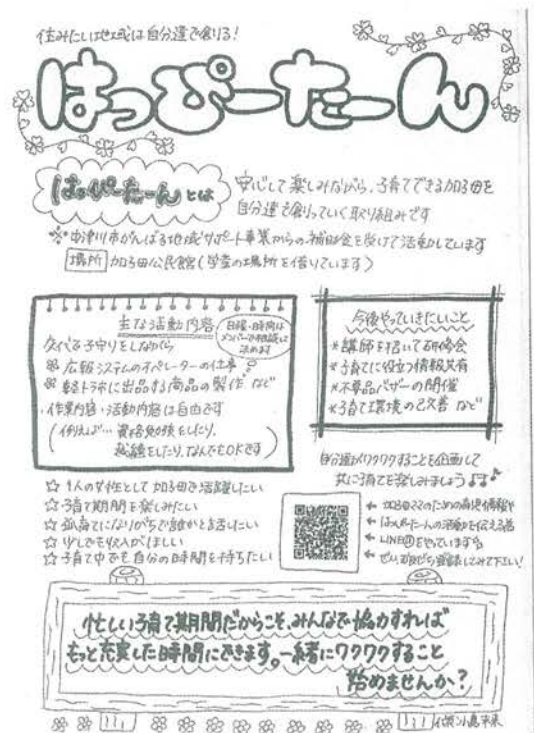 住みたい地域は自分達で創る!
はっぴーたーん
はっぴーたーんとは
安心して楽しみながら、子育てできる加子母を
自分達で創っていく取り組みです
※中津川市がんばる地域サポート事業からの補助金を受けて活動しています
場所 加子母公民館(学童の場所を借りています)
主な活動内容
日程・時間は
メンバーで相談して
決めます
交代で子守りをしながら
広報システムのオペレーターの仕事
軽トラ市に出品する商品の製作 など
・作業内容・活動内容は自由です
(例えば… 資格勉強をしたり、
裁縫をしたり、なんでもOKです)
今後やっていきたいこと
*講師を招いて研修会
*子育てに役立つ情報共有
*不要品バザーの開催
*子育て環境の改善 など
自分達がワクワクすることを企画して
共に子育てを楽しみましょう♪
☆1人の女性として加子母で活躍したい
☆子育て期間を楽しみたい
☆孤育てになりがちで誰かと話したい
☆少しでも収入がほしい
☆子育て中でも自分の時間を持ちたい
← 加子母ママのための育児情報や
← はっぴーたーんの活動を伝える為
← LINE@をやっています
← ぜひ登録してみて下さい!
忙しい子育て期間だからこそ、みんなで協力すれば
もっと充実した時間にできます。一緒にワクワクすること
始めませんか?